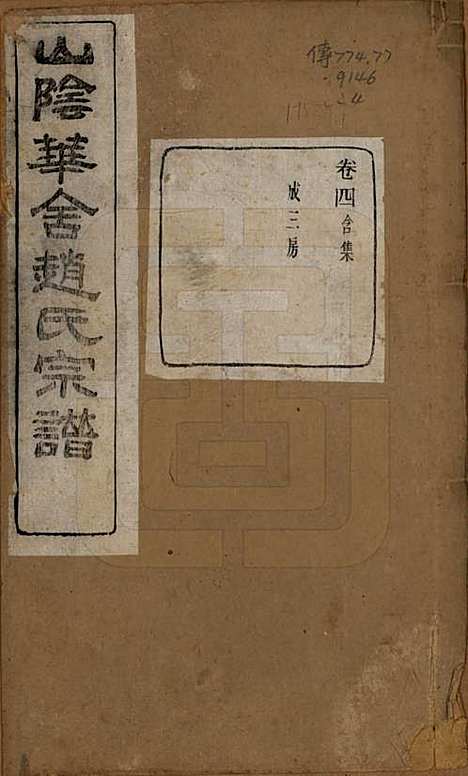 山陰華舍趙氏宗譜
卷四合集
成三房
傳774.77
9146